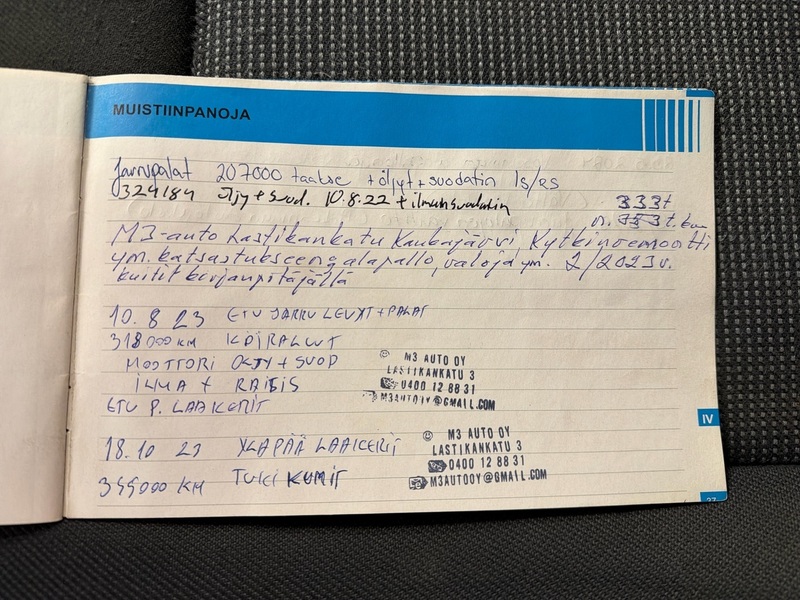 MUISTIINPANOJA
Jarrupalat 207000 taakse + öljyt + suodatin
324184 Öljy + suod. 10.8.22 + ilmansuodatin
333t
M3-auto Lastikankatu Kaukajärvi, Kytkinremontti
ym. katsastukseen, alapallo, valoja ym. 2/2023 v.
kuitit kirjanpitäjällä
10.8 23 ETU JARRULEVYT + PALAT
318000 KM KOIRALUUT
MOOTTORI ÖLJY + SUOD
ILMA + RAITIS
ETU P. LAAKERIT
M3 AUTO OY
LASTIKANKATU 3
0400 12 88 31
M3AUTOOY@GMAIL.COM
18.10 23 YLÄPÄÄ LAAKERIT
KM TUKI KUMIT
M3 AUTO OY
LASTIKANKATU 3
0400 12 88 31
M3AUTOOY@GMAIL.COM
IV